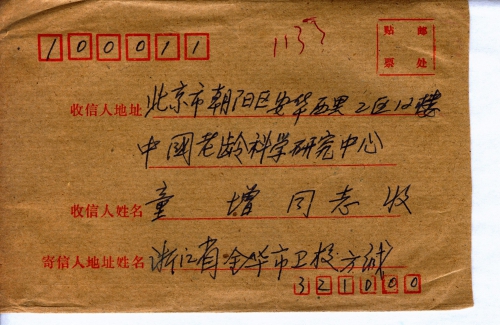 100011
1133
贴 邮
票 处
收信人地址 北京市朝阳区安华西里2区12楼
中国老龄科学研究中心
收信人姓名 童增同志收
寄信人地址姓名 浙江省金华市卫校方绒
321000